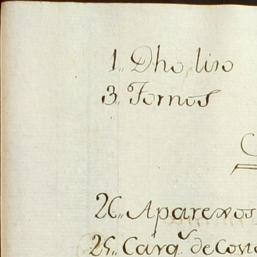 1.. Dho liso
3.. Fornos
C
26.. Aparexos
25.. Carg.^s de